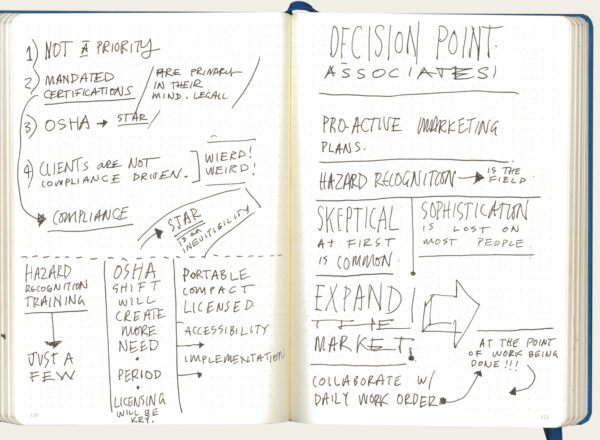 1) NOT A PRIORITY
2) MANDATED
CERTIFICATIONS
ARE PRIMARY
IN THEIR
MIND. LEGALL.
3) OSHA → STAR
4) CLIENTS ARE NOT
COMPLIANCE DRIVEN.
WIERD!
WEIRD!
COMPLIANCE
STAR
IS AN
INEVITIBILITY
HAZARD
RECOGNITION
TRAINING
JUST A
FEW
OSHA
SHIFT
WILL
CREATE
MORE
NEED
•
PERIOD
•
LICENSING
WILL BE
KEY.
PORTABLE
COMPACT
LICENSED
ACCESSIBILITY
IMPLEMENTATION
120
DECISION POINT.
ASSOCIATES!
PRO-ACTIVE MARKETING
PLANS.
HAZARD RECOGNITION → IS THE
FIELD.
SKEPTICAL
AT FIRST
IS COMMON.
SOPHISTICATION
IS LOST ON
MOST PEOPLE.
EXPAND
THE
MARKET.
COLLABORATE W/
DAILY WORK ORDER
AT THE POINT
OF WORK BEING
DONE!!!
121